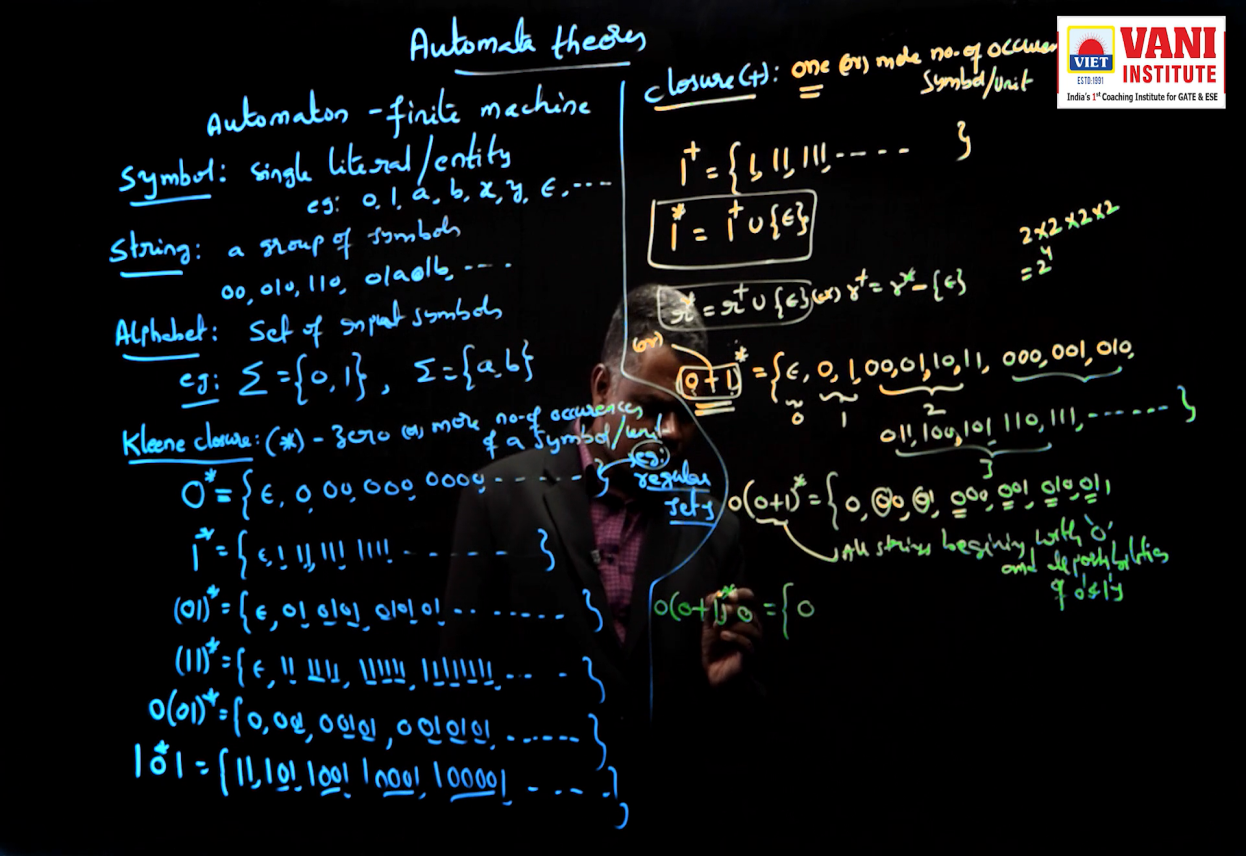 Automata theory
Automaton - finite machine
Symbol: single literal/entity
eg: 0, 1, a, b, x, y, ϵ, ----
String: a group of symbols
00, 010, 110, 01a01b, ----
Alphabet: Set of input symbols
eg: Σ = {0, 1} , Σ = {a, b}
Kleene closure: (*) - zero (or) more no-of occurences
of a symbol/unit
0* = {ϵ, 0, 00, 000, 0000, ------ }
eg:
regular
sets
1* = {ϵ, 1, 11, 111, 1111 ------ }
(01)* = {ϵ, 01, 0101, 010101 -------- }
(11)* = {ϵ, 11, 1111, 111111, 11111111, ---- }
0(01)* = {0, 001, 00101, 0010101, ------- }
10*1 = {11, 101, 1001, 10001, 100001, ---- }
closure(+): one (or) more no-of
Symbol/unit
1⁺ = {1, 11, 111, ----- }
1* = 1⁺ ∪ {ϵ}
2×2×2×2
= 2⁴
r* = r⁺ ∪ {ϵ} (or) r⁺ = r* - {ϵ}
(or)
(0+1)* = {ϵ, 0, 1, 00, 01, 10, 11, 000, 001, 010,
0 1 2
011, 100, 101, 110, 111, ------- }
3
0(0+1)* = {0, 00, 01, 000, 001, 010, 011
All strings begining with '0'
and all possibilities
of
0(0+1)* 0 = {0
VIET
ESTD:1991
VANI
INSTITUTE
India's 1st Coaching Institute for GATE & ESE